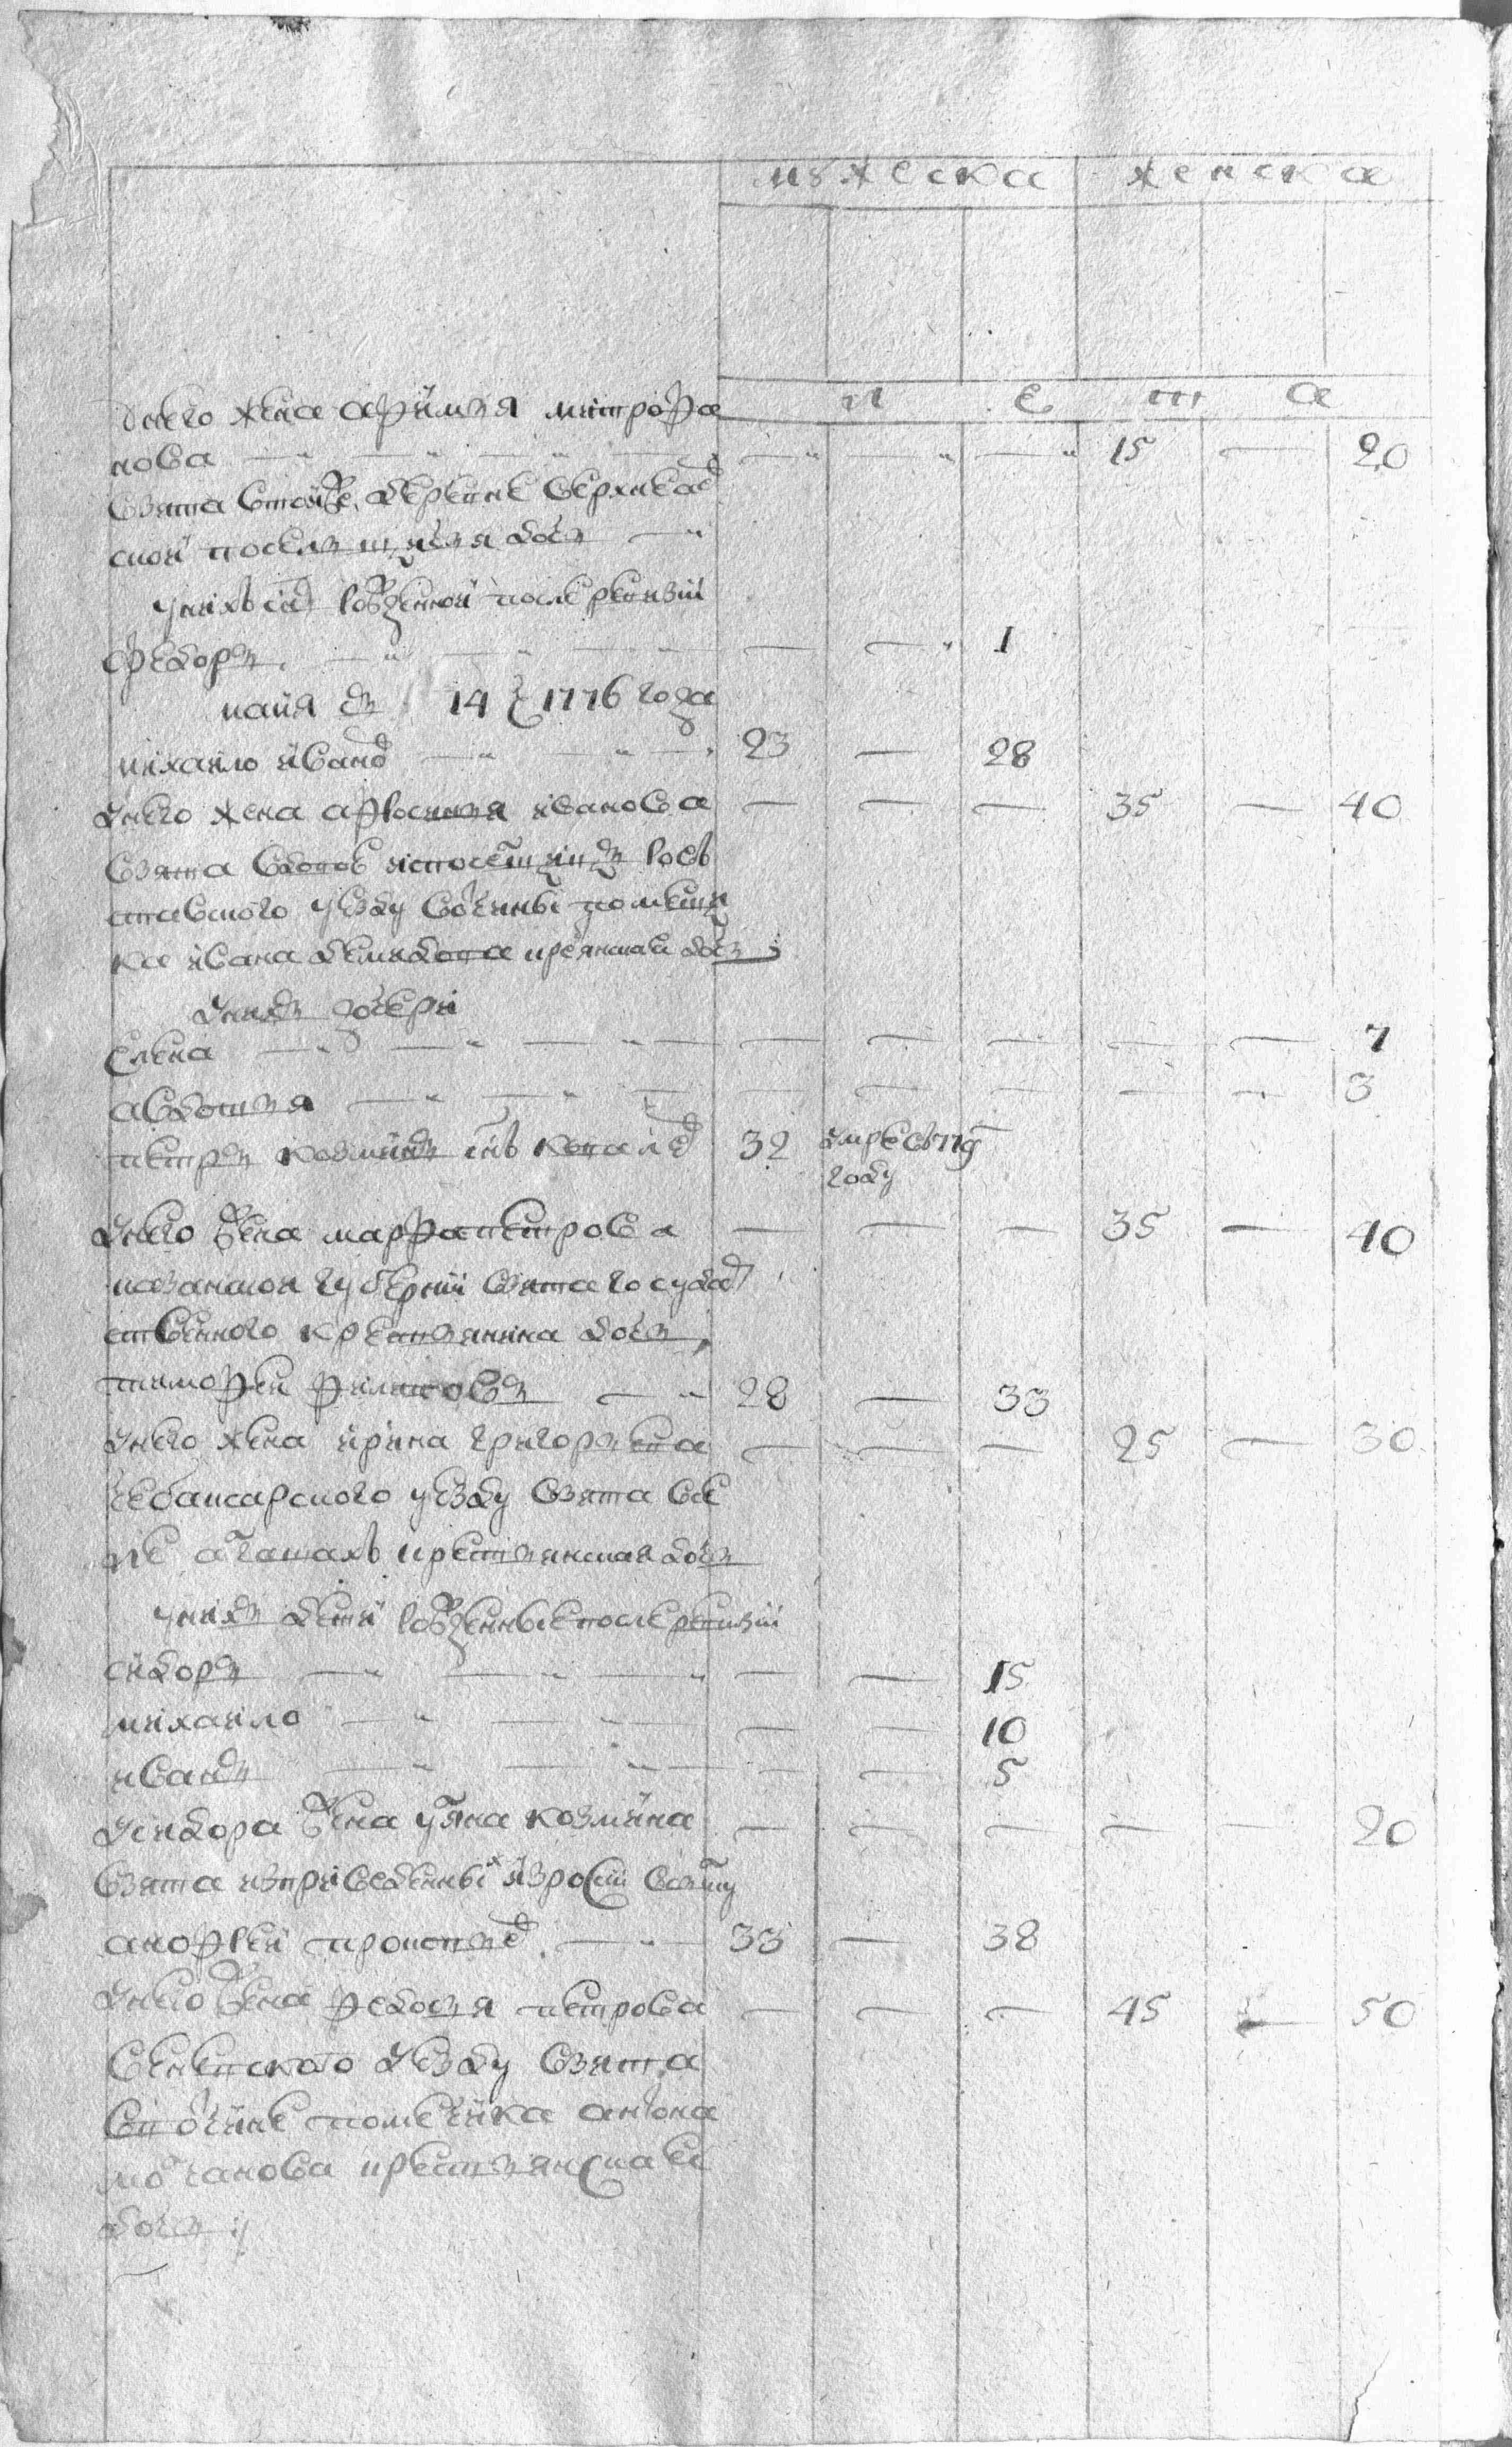 мужеска женска
л е т а
унего жена афимья митрофа
нова 15 20
взята втойже деревне верхнеаб
ской поселшичья дочь
унихъ сн рожденной после ревизии
федоръ 1
майя д 14 1776 года
михайло иванов 23 28
унего жена афросинья иванова 35 40
взята
ставского уезду вотчины помещи
ка ивана демидова крестьянская дочь
унихъ дочери
елена 7
авдотья 3
петръ козминъ снъ 32 умре въ 779
году
унего жена марфа петрова 35 40
казанской губернии взята государ
ственного крестьянина дочь
тимофей филиповъ 28 33
унего жена ирина григорьева 25 30
чебаксарского уезду взята все
ле аташахъ крестьянская дочь
унихъ дети рожденные после ревизии
сидоръ 15
михайло 10
иванъ 5
усидора жена уляна козмина 20
взята изприведенных изросии
анофрей прокопьев 33 38
унего жена федосья петрова 45 50
уезду взята
вотчине помещика антона
молчанова крестьянская
дочь